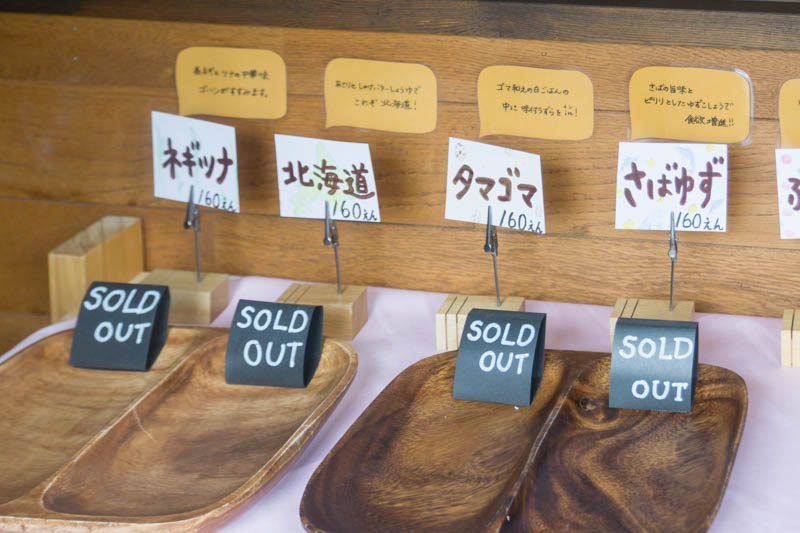 長ネギとツナの中華味
ゴハンがすすみます。
あさりとしゃけバターしょうゆで
これぞ北海道!
ゴマ和えの白ごはんの
中に味付うずらをイン(in)!
さばの旨味と
ピリリとしたゆずこしょうで
食欲増進!!
ネギツナ
160えん
北海道
160えん
タマゴマ
160えん
さばゆず
160えん
SOLD
OUT
SOLD
OUT
SOLD
OUT
SOLD
OUT